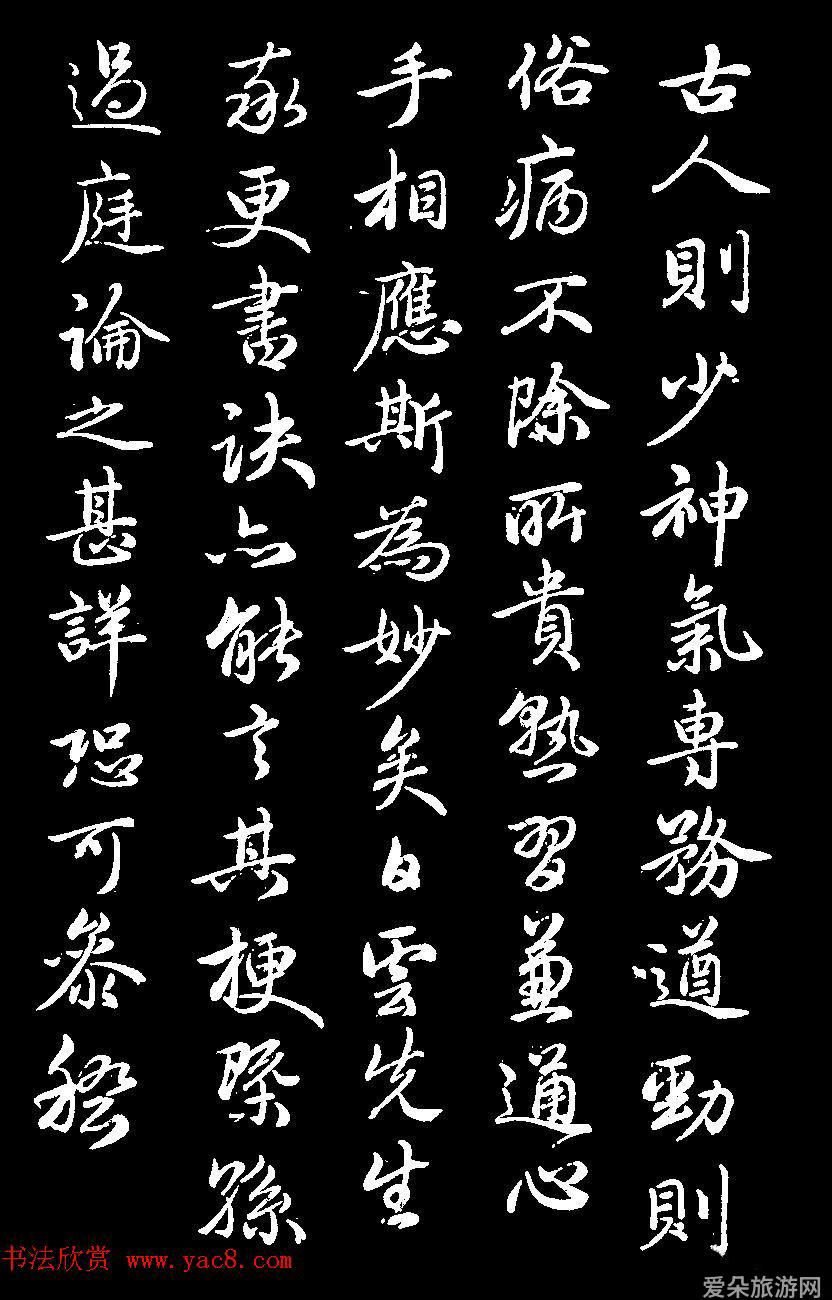 古人則少神氣專務遒勁則
俗病不除所貴熟習兼通心
手相應斯為妙矣白雲先生
率更書訣亦能言其梗槩孫
過庭論之甚詳恐可參稽
书法欣赏 www.yac8.com
爱朵旅游网